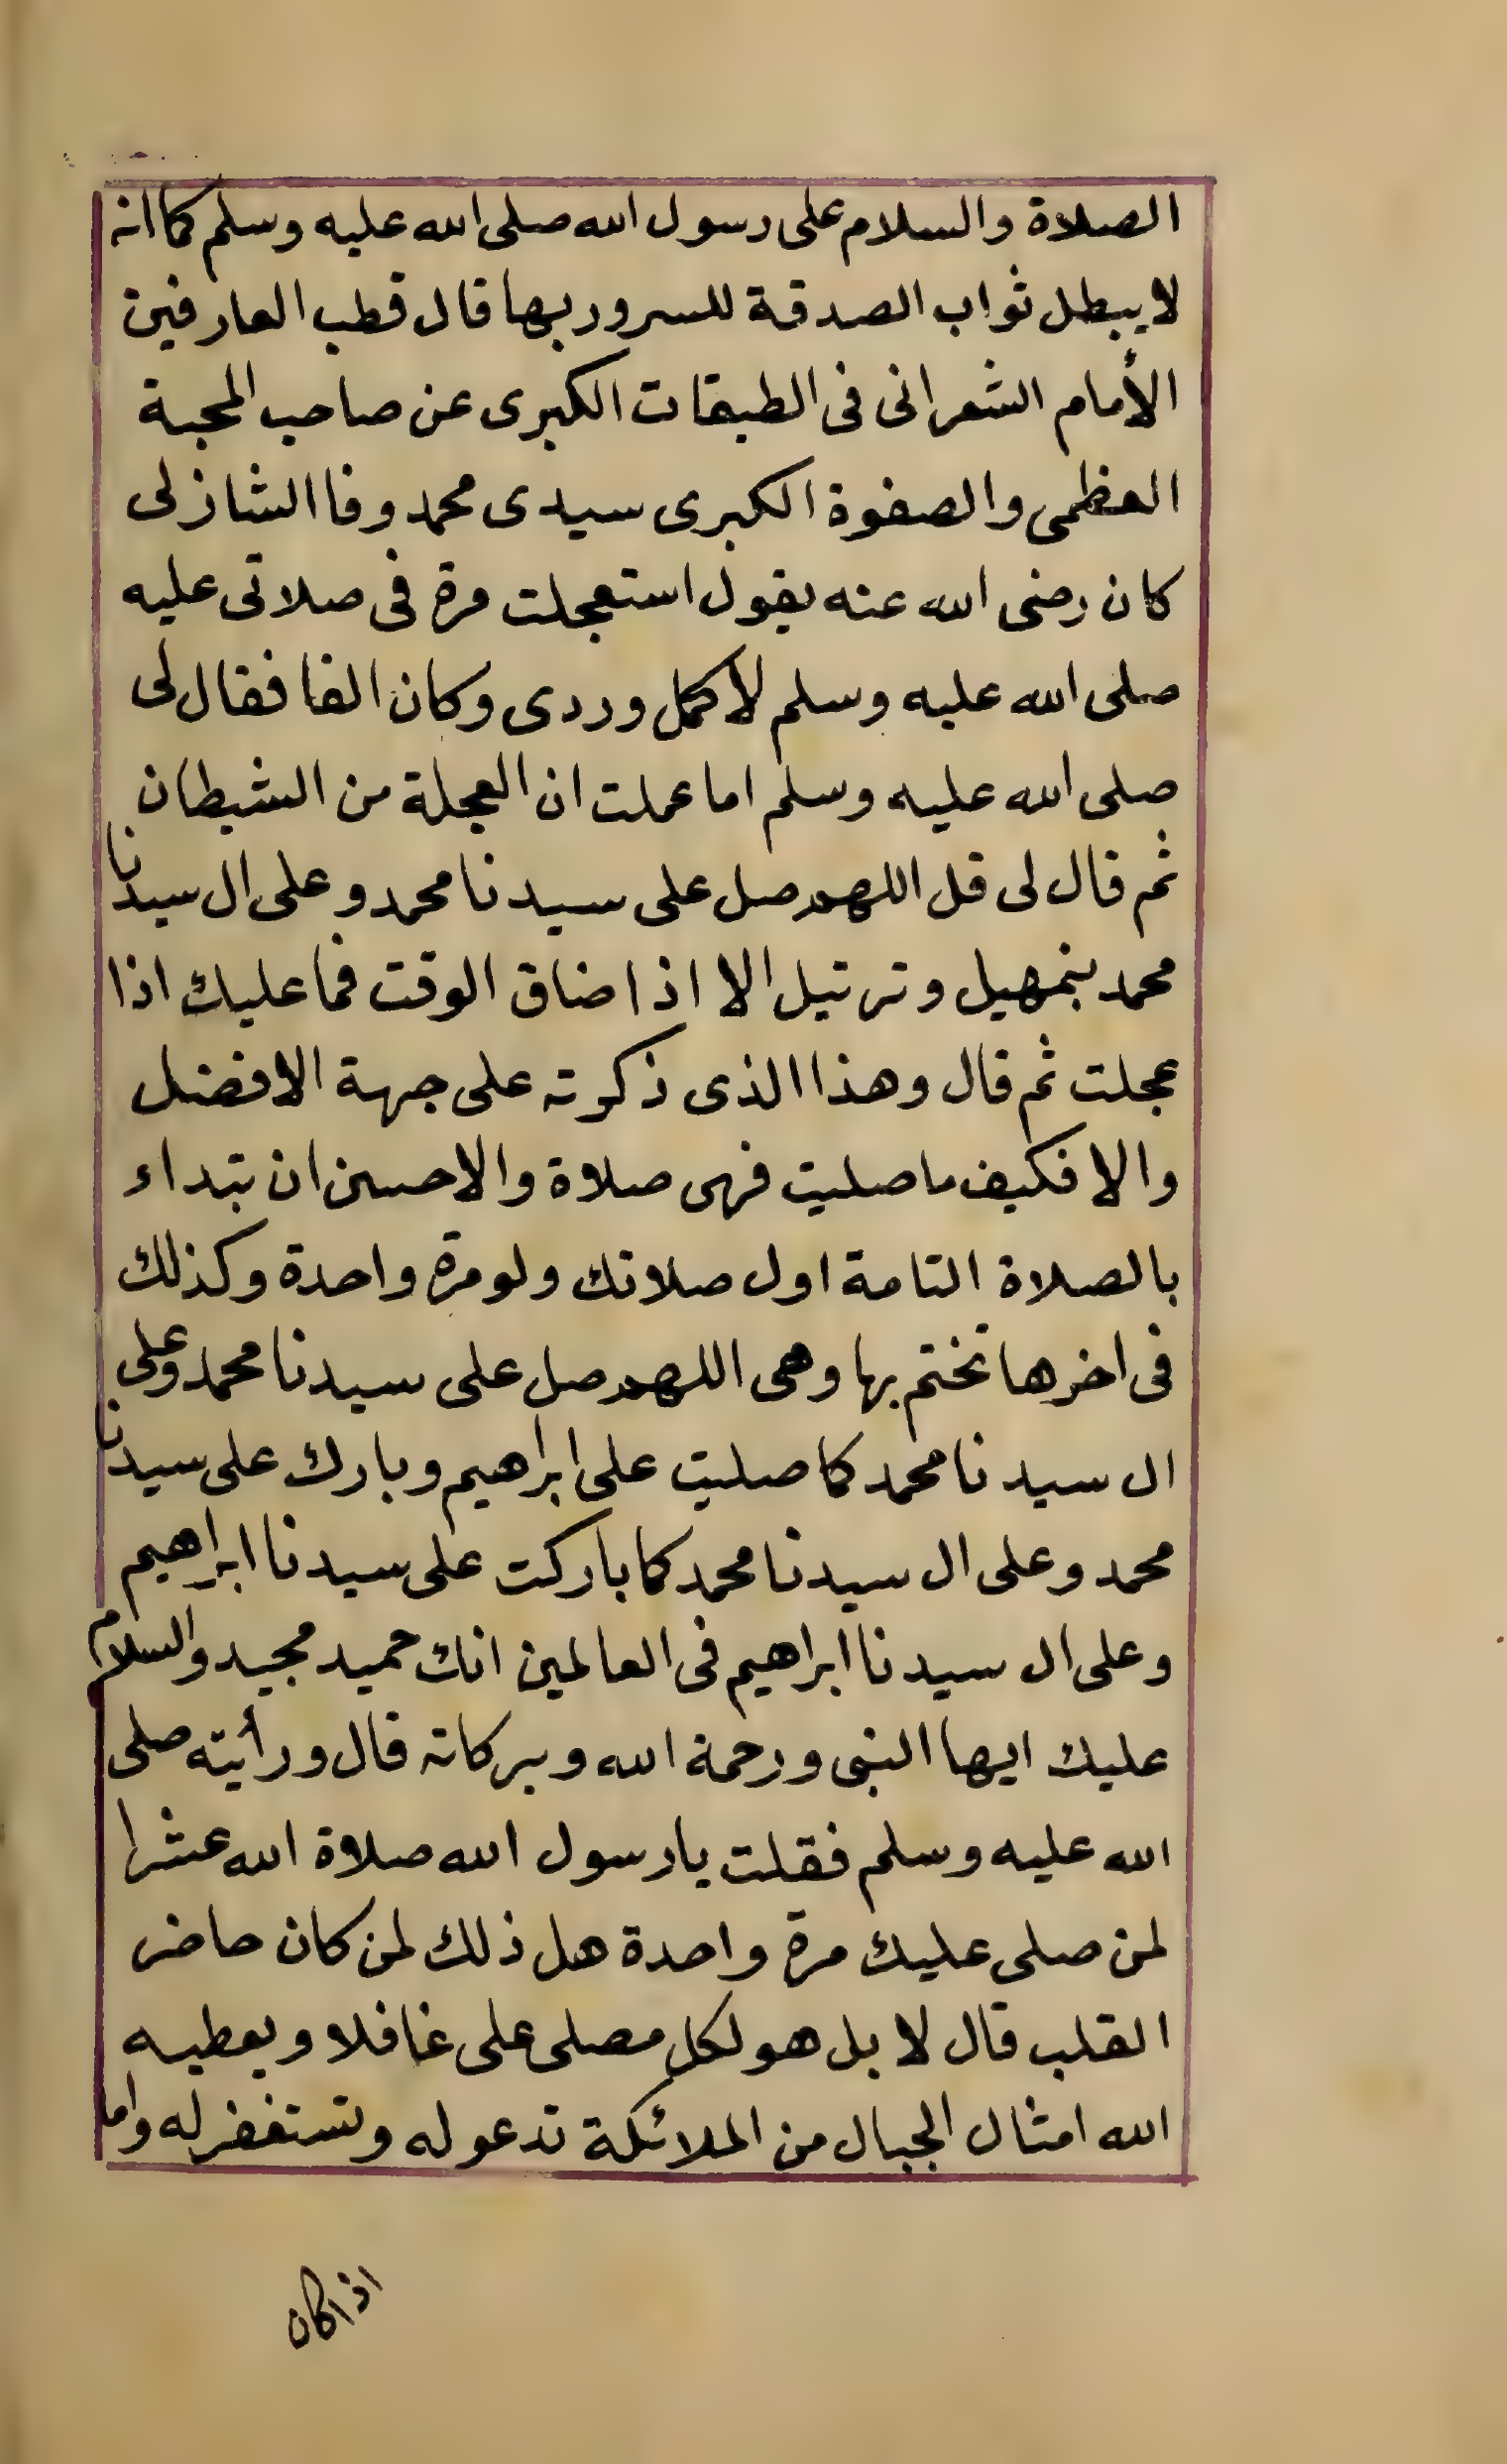 الصلاة والسلام على رسول الله صلى الله عليه وسلم كما انه
لا يبطل ثواب الصدقة للسرور بها قال قطب العارفين
الأمام الشعرانى فى الطبقات الكبرى عن صاحب المحبة
العظمى والصفوة الكبرى سيدى محمد وفا الشاذلى
كان رضى الله عنه يقول استعجلت مرة فى صلاتى عليه
صلى الله عليه وسلم لاكمل وردى وكان الفا فقال لى
صلى الله عليه وسلم اما عملت ان العجلة من الشيطان
ثم قال لى قل اللهم صل على سيدنا محمد وعلى ال سيدنا
محمد بتمهيل وترتيل الا اذا ضاق الوقت فما عليك اذا
عجلت ثم قال وهذا الذى ذكرته على جهة الافضل
والا فكيف ما صليت فهى صلاة والاحسن ان تبداء
بالصلاة التامة اول صلاتك ولو مرة واحدة وكذلك
فى اخرها تختم بها وهى اللهم صل على سيدنا محمد وعلى
ال سيدنا محمد كما صليت على ابراهيم وبارك على سيدنا
محمد وعلى ال سيدنا محمد كما باركت على سيدنا ابراهيم
وعلى ال سيدنا ابراهيم فى العالمين انك حميد مجيد والسلام
عليك ايها النبى ورحمة الله وبركاته قال ورأيته صلى
الله عليه وسلم فقلت يا رسول الله صلاة الله عشرا
لمن صلى عليك مرة واحدة هل ذلك لمن كان حاضر
القلب قال لا بل هو لكل مصلى على غافلا ويعطيه
الله امثال الجبال من الملائكة تدعو له وتستغفر له واما
اذا كان